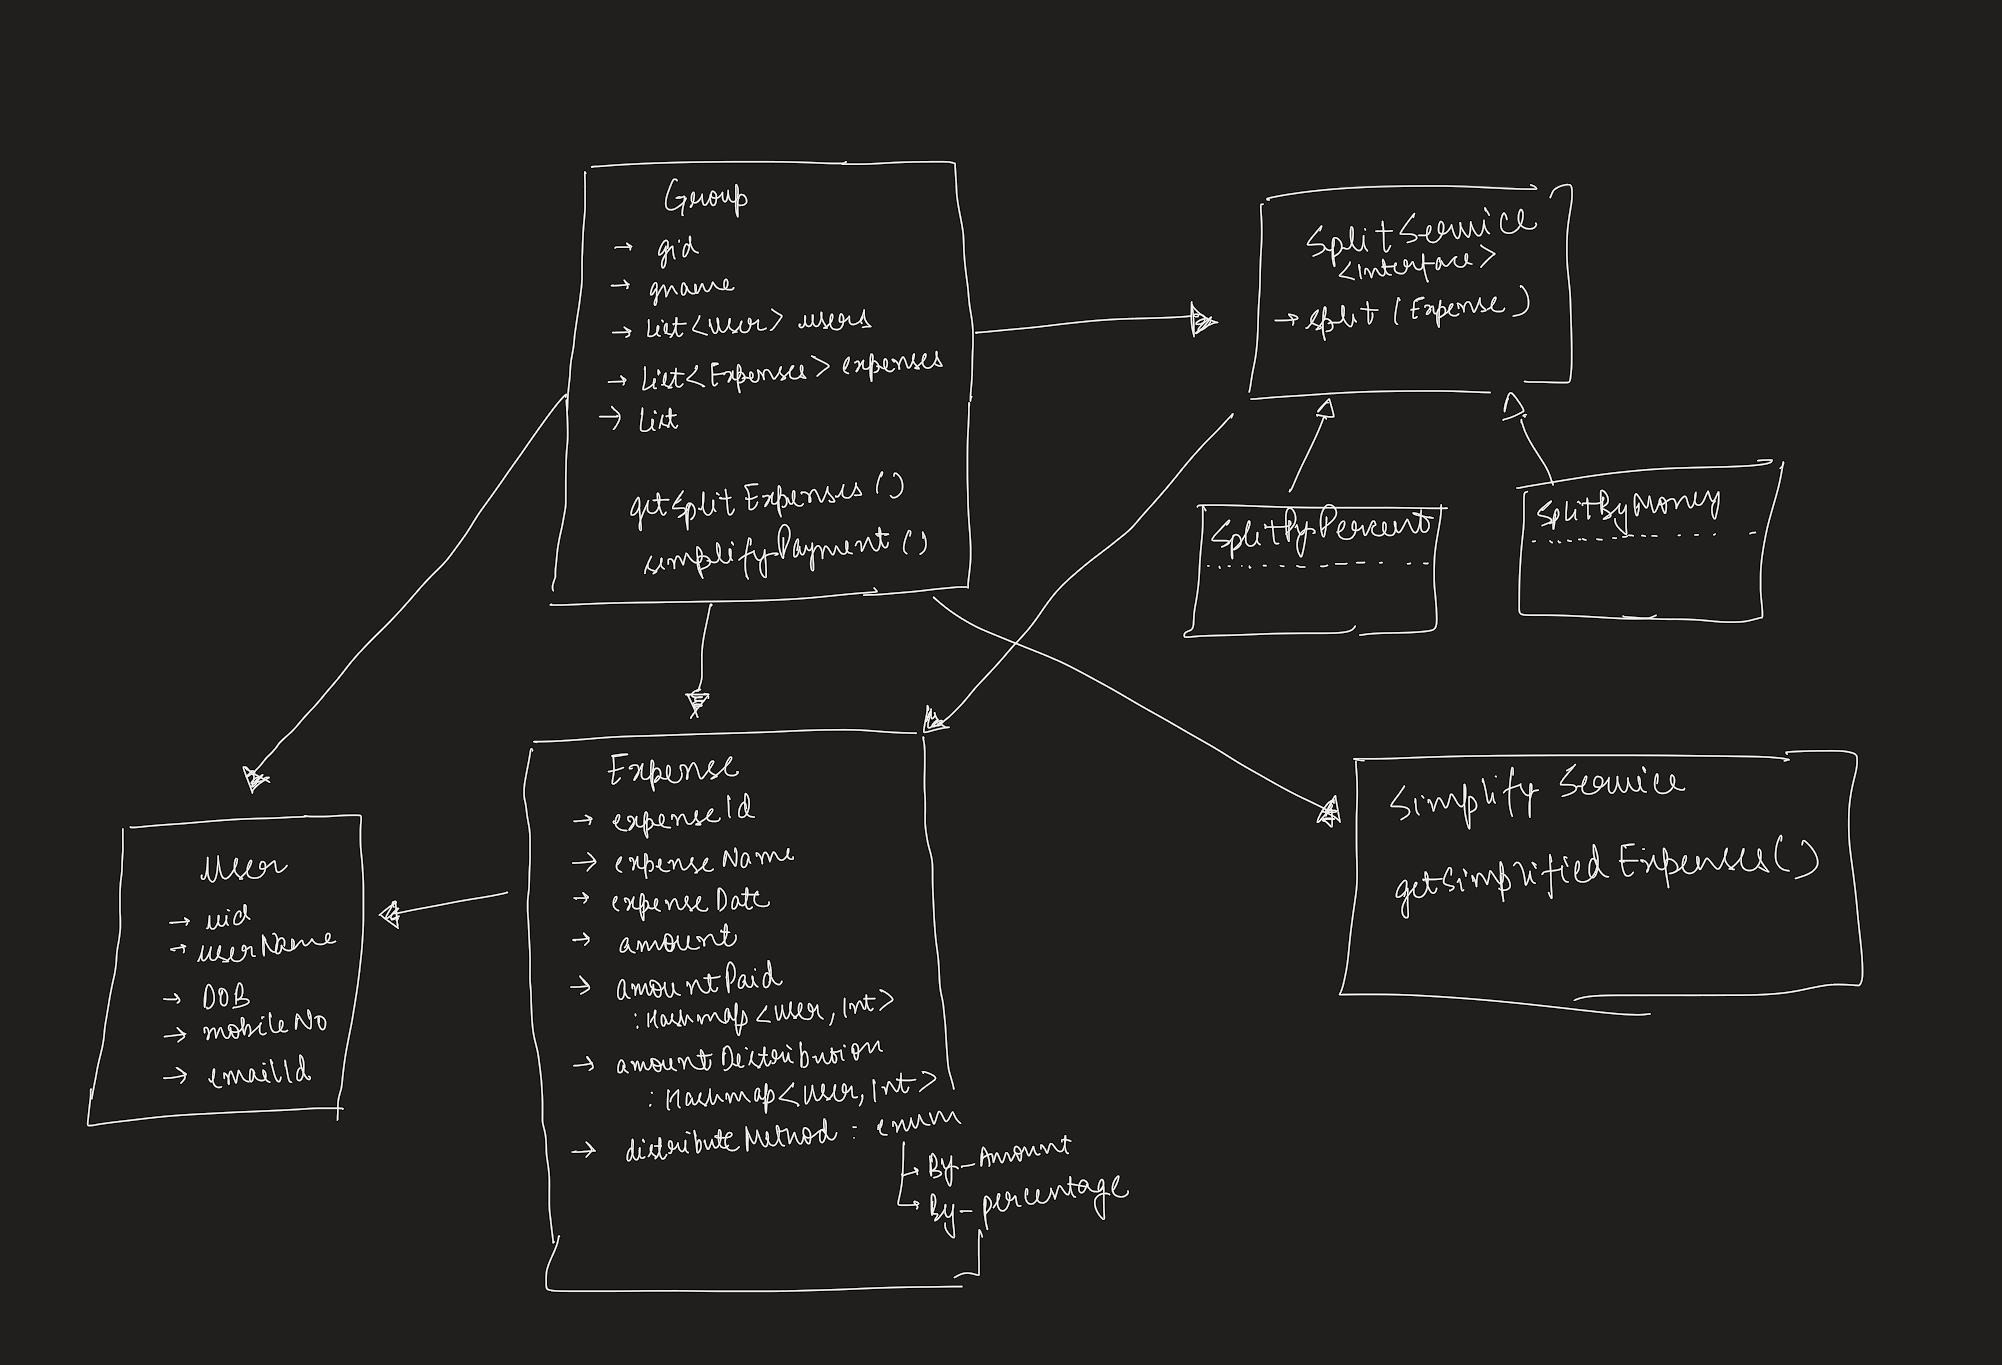 Group
→ gid
→ gname
→ List<User> users
→ List<Expenses> expenses
→ List
getSplitExpenses()
simplifyPayment()
SplitService
<interface>
→ split(Expense)
SplitByPercent
SplitByMoney
User
→ uid
→ userName
→ DOB
→ mobileNo
→ emailId
Expense
→ expenseId
→ expenseName
→ expenseDate
→ amount
→ amountPaid
: Hashmap<User, Int>
→ amountDistribution
: Hashmap<User, Int>
→ distributeMethod : enum
→ By-Amount
→ By-percentage
Simplify Service
getSimplifiedExpenses()